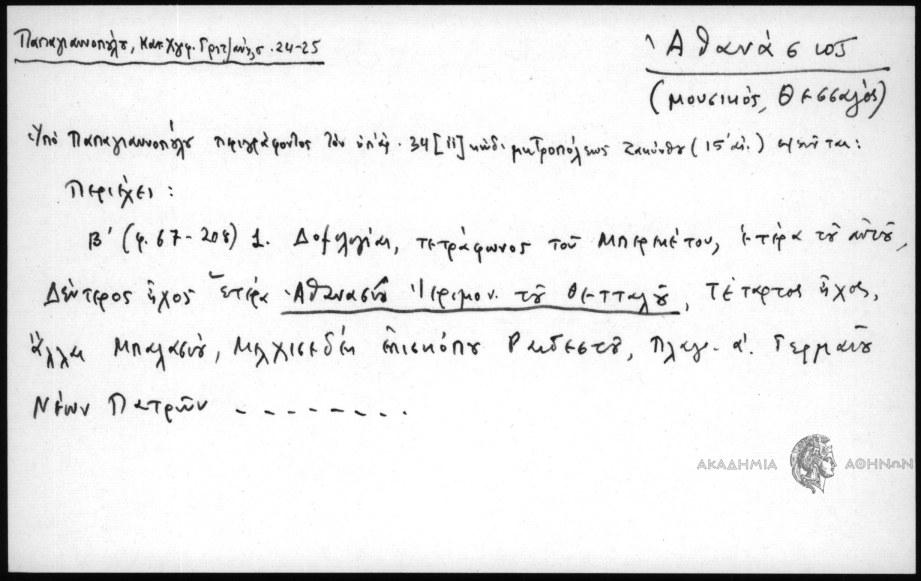 Παπαγιαννοπούλου, Κατ. Χγφ. σ. 24-25
Ἀθανάσιος
(μουσικός, Θεσσαλός)
Ὑπό Παπαγιαννοπούλου περιγράφοντος τόν ὑπ' ἀρ. 34 [11] κώδ. μητροπόλεως Ζακύνθου (15' αἰ.) :
Περιέχει :
Β' (φ. 67-208) 1. Δοξολογίαι, τετράφωνος τοῦ Μπερεκέτου, ἑτέρα τοῦ αὐτοῦ,
Δεύτερος ἦχος ἑτέρα Ἀθανασίου Ἱερομον. τοῦ Θετταλοῦ, Τέταρτος ἦχος,
ἄλλαι Μπαλασίου, Μελχισεδέκ ἐπισκόπου Ραιδεστοῦ, Πλαγ. α'. Γερμανοῦ
Νέων Πατρῶν - - - - - - - - .
ΑΚΑΔΗΜΙΑ ΑΘΗΝΩΝ